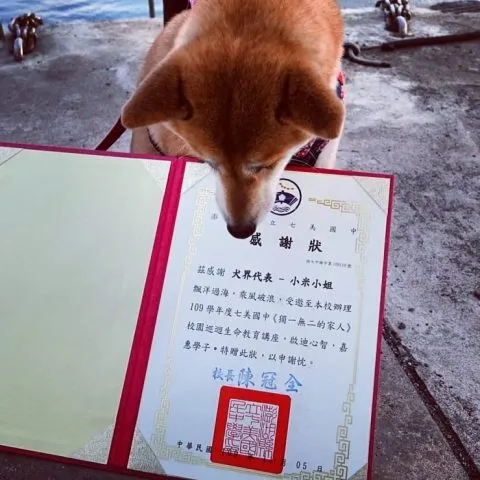 澎 立七美國中
感謝狀
茲感謝 犬界代表－小米小姐
飄洋過海，乘風破浪，受邀至本校辦理
109 學年度七美國中《獨一無二的家人》
校園巡迴生命教育講座，啟迪心智，嘉
惠學子。特贈此狀，以申謝忱。
校長 陳冠全
中華民國 月 05 日